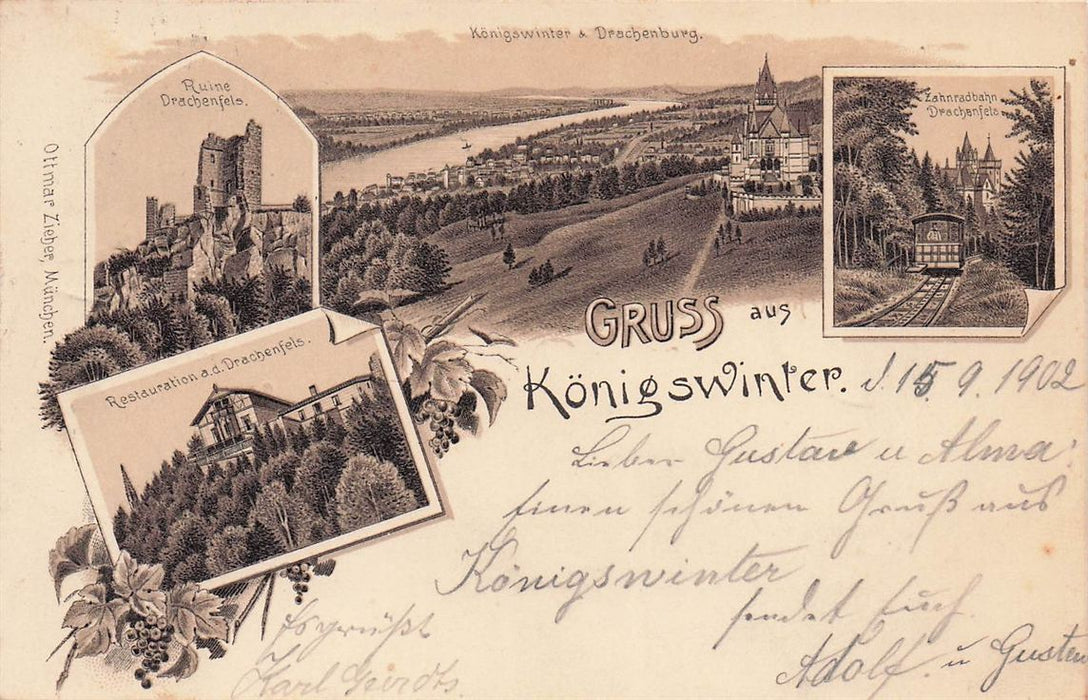 Königswinter & Drachenburg.
Ruine
Drachenfels.
Zahnradbahn
Drachenfels
Ottmar Zieher, München.
Restauration a.d. Drachenfels.
GRUSS aus
Königswinter.
d. 15. 9. 1902
Lieber Gustav u Alma!
Einen schönen Gruß aus
Königswinter
sendet Euch
Adolf. u Gusten
Es grüßt
Karl